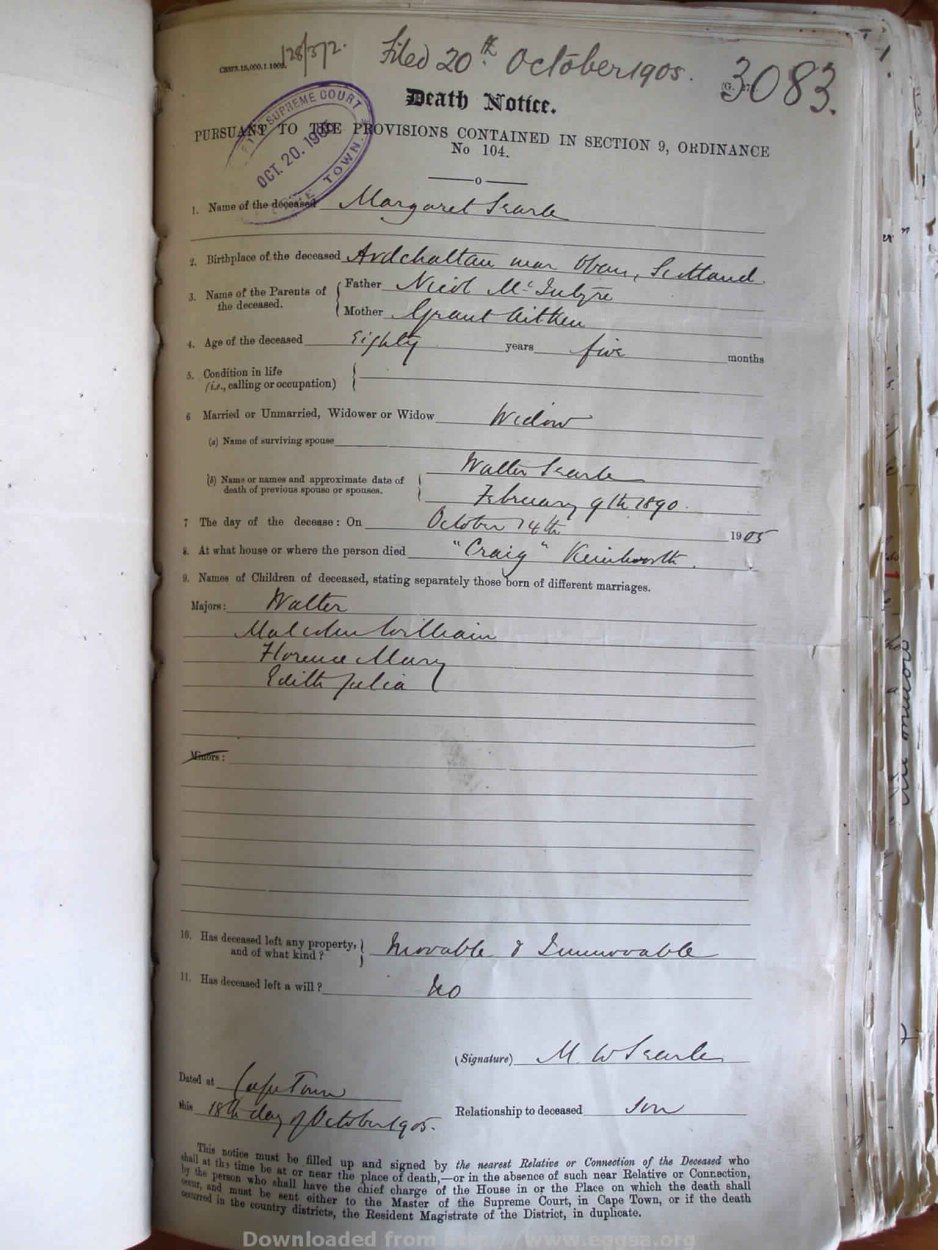 128/372.
Filed 20th October 1905. 3083.
Death Notice.
SUPREME COURT
OCT. 20. 1905
TOWN.
PURSUANT TO THE PROVISIONS CONTAINED IN SECTION 9, ORDINANCE
No 104.
1. Name of the deceased Margaret Searle
2. Birthplace of the deceased Ardchattan near Oban, Scotland.
3. Name of the Parents of the deceased. Father Nicol McIntyre
Mother Grant Aitken
4. Age of the deceased Eighty years five months
5. Condition in life
(i.e., calling or occupation)
6 Married or Unmarried, Widower or Widow Widow
(a) Name of surviving spouse
Walter Searle
(b) Name or names and approximate date of
death of previous spouse or spouses.
February 9th 1890.
7 The day of the decease: On October 14th 1905
8. At what house or where the person died "Craig" Kenilworth.
9. Names of Children of deceased, stating separately those born of different marriages.
Majors: Walter
Malcolm William
Florence Mary
Edith Julia
Minors:
10. Has deceased left any property,
and of what kind? Movable & Immovable
11. Has deceased left a will? No
(Signature) M. W Searle
Dated at Cape Town
this 18th day of October 1905.
Relationship to deceased Son
This notice must be filled up and signed by the nearest Relative or Connection of the Deceased who
shall at the time be at or near the place of death,—or in the absence of such near Relative or Connection,
by the person who shall have the chief charge of the House in or the Place on which the death shall
occur, and must be sent either to the Master of the Supreme Court, in Cape Town, or if the death
occurred in the country districts, the Resident Magistrate of the District, in duplicate.
Downloaded from http://www.eggsa.org